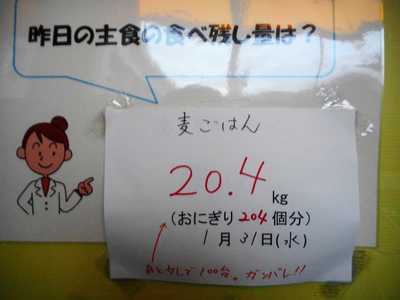 昨日の主食の食べ残し量は？
麦ごはん
20.4 kg
(おにぎり 204 個分)
1月31日(水)
あと少しで100台。ガンバレ!!